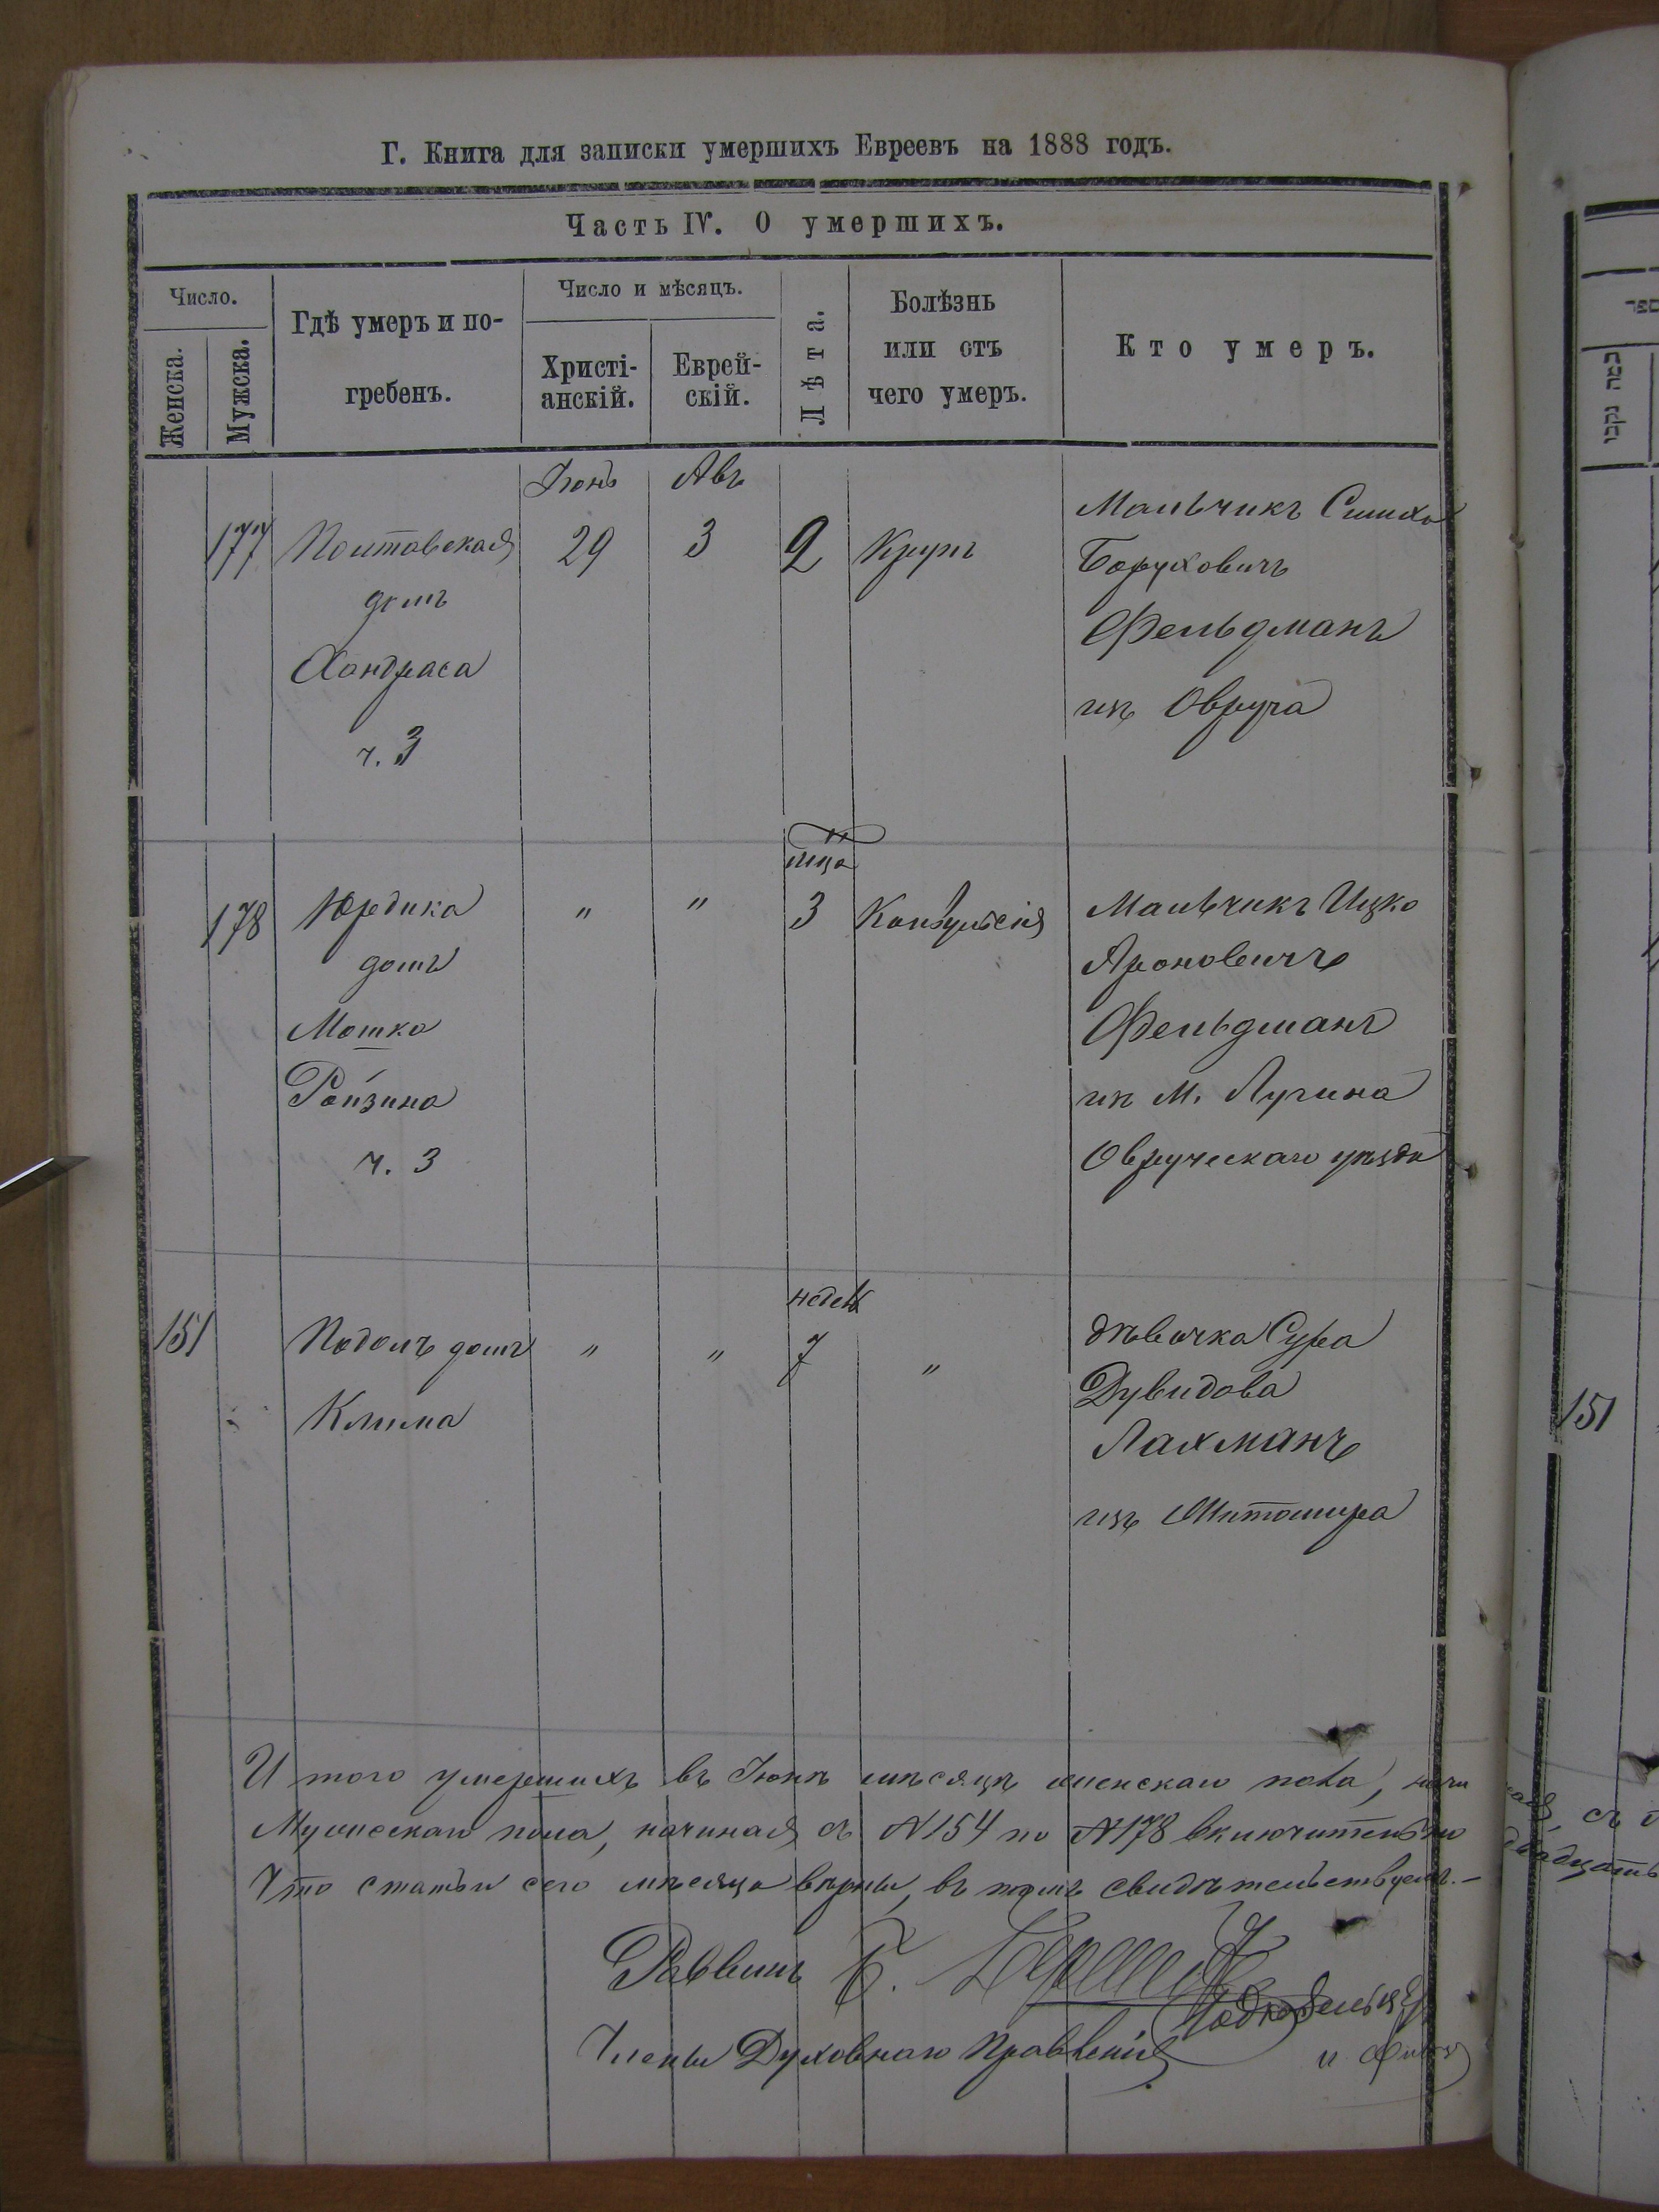 Г. Книга для записки умершихъ Евреевъ на 1888 годъ.
Часть IV. О умершихъ.
Число.
Женска.
Мужска.
Гдѣ умеръ и по-
гребенъ.
Число и мѣсяцъ.
Христі-
анскій.
Еврей-
скій.
Лѣта.
Болѣзнь
или отъ
чего умеръ.
Кто умеръ.
Іюнь Авъ
177 Полтавская 29 3 2 Крупъ Мальчикъ Симха
домъ Боруховичъ
Хондраса Фельдманъ
ч. 3 изъ Овруча
мца
178 Юрдика " " 3 Конвульсія Мальчикъ Ицко
домъ Ароновичъ
Мошка Фельдманъ
Ройзина изъ М. Лугина
ч. 3 Овручскаго уѣзда
недел
151 Подолъ домъ " " 7 " дѣвочка Сура
Клима Дувидова
Лахманъ
изъ Житомира
Итого умершихъ въ Іюнѣ мѣсяцѣ женскаго пола,
Мужескаго пола, начиная съ №154 по №178 включительно
Что статьи сего мѣсяца вѣрны, въ томъ свидѣтельствуемъ.—
Раввинъ Б.
Члены Духовнаго Правленія
и
151
съ
двадцать